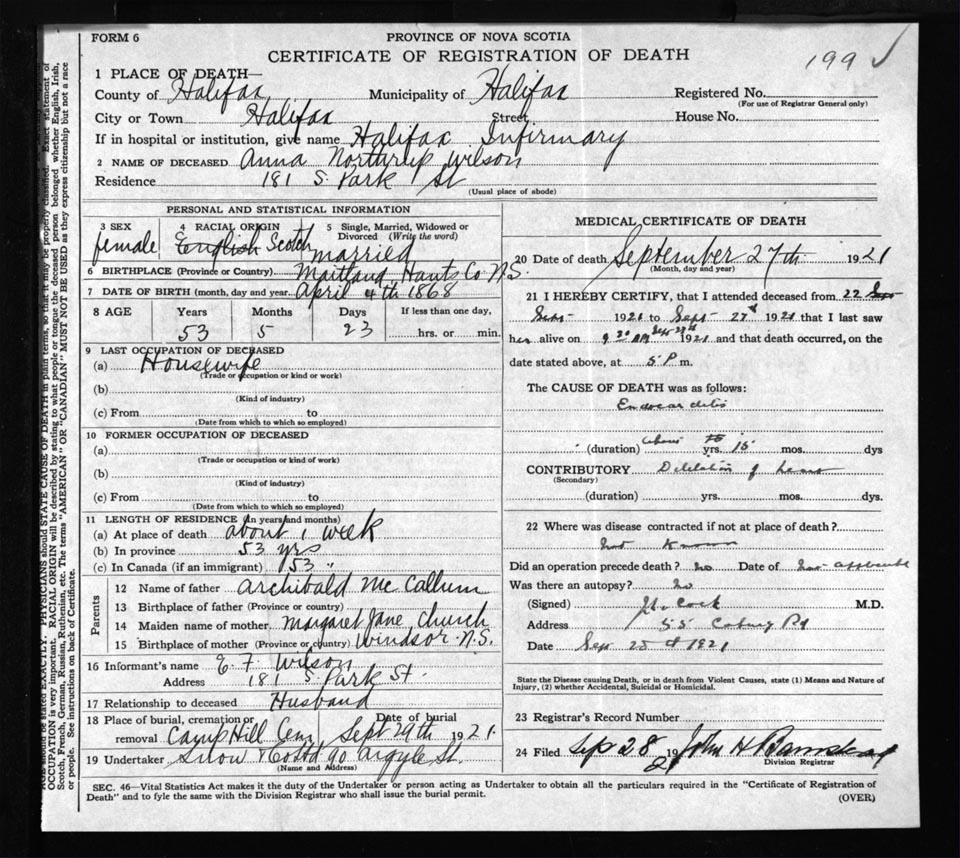 FORM 6
PROVINCE OF NOVA SCOTIA
CERTIFICATE OF REGISTRATION OF DEATH
199 ✓
1 PLACE OF DEATH—
County of Halifax Municipality of Halifax Registered No.
(For use of Registrar General only)
City or Town Halifax Street House No.
If in hospital or institution, give name Halifax Infirmary
2 NAME OF DECEASED Anna Northrup Wilson
Residence 181 S. Park St
(Usual place of abode)
PERSONAL AND STATISTICAL INFORMATION
3 SEX 4 RACIAL ORIGIN 5 Single, Married, Widowed or Divorced (Write the word)
female English Scotch married
6 BIRTHPLACE (Province or Country) Maitland Hants Co N.S.
7 DATE OF BIRTH (month, day and year April 4th 1868
8 AGE Years Months Days If less than one day,
53 5 23 hrs. or min.
9 LAST OCCUPATION OF DECEASED
(a) Housewife
(Trade or occupation or kind or work)
(b)
(Kind of industry)
(c) From to
(Date from which to which so employed)
10 FORMER OCCUPATION OF DECEASED
(a)
(Trade or occupation or kind of work)
(b)
(Kind of industry)
(c) From to
(Date from which to which so employed)
11 LENGTH OF RESIDENCE (in years and months)
(a) At place of death about 1 week
(b) In province 53 yrs
(c) In Canada (if an immigrant) 53 "
Parents
12 Name of father Archibald McCallum
13 Birthplace of father (Province or country)
14 Maiden name of mother Margaret Jane Church
15 Birthplace of mother (Province or country) Windsor N.S.
16 Informant's name E. F. Wilson
Address 181 S. Park St.
17 Relationship to deceased Husband
18 Place of burial, cremation or removal Camp Hill Cem, Date of burial Sept 29th 1921
19 Undertaker Snow & Co Ltd 90 Argyle St.
(Name and Address)
MEDICAL CERTIFICATE OF DEATH
20 Date of death September 27th 1921
(Month, day and year)
21 I HEREBY CERTIFY, that I attended deceased from 22
Sept 1921 to Sept 27th 1921 that I last saw
her alive on 9.30 Sept 27th 1921 and that death occurred, on the
date stated above, at 5 P m.
The CAUSE OF DEATH was as follows:
Endocarditis
(duration) about yrs. 15 mos. dys
CONTRIBUTORY Dilatation of heart
(Secondary)
(duration) yrs. mos. dys.
22 Where was disease contracted if not at place of death?
not known
Did an operation precede death? no Date of
Was there an autopsy? no
(Signed) Cock M.D.
Address 55 Coburg Rd
Date Sep 28th 1921
State the Disease causing Death, or in death from Violent Causes, state (1) Means and Nature of
Injury, (2) whether Accidental, Suicidal or Homicidal.
23 Registrar's Record Number
24 Filed Sep 28 1921 John H Barnstead
Division Registrar
SEC. 46—Vital Statistics Act makes it the duty of the Undertaker or person acting as Undertaker to obtain all the particulars required in the "Certificate of Registration of
Death" and to fyle the same with the Division Registrar who shall issue the burial permit.
(OVER)
be stated EXACTLY. PHYSICIANS should STATE CAUSE OF DEATH in plain terms, so that it may be properly classified. Exact statement of
OCCUPATION is very important. RACIAL ORIGIN will be described by stating to what people or tongue the deceased person belonged whether English, Irish,
Scotch, French, German, Russian, Ruthenian, etc. The terms "AMERICAN" OR "CANADIAN" MUST NOT BE USED as they express citizenship but not a race
or people. See instructions on back of Certificate.